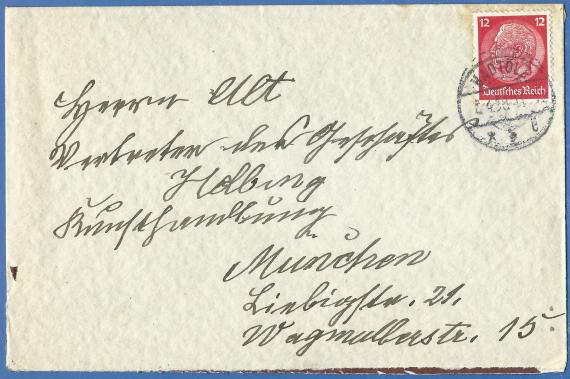 12 12
Deutsches Reich
Herrn Alt
Vertreter des Geschäftes
Helbing
Kunsthandlung
München
Liebigstr. 21.
Wagmüllerstr. 15